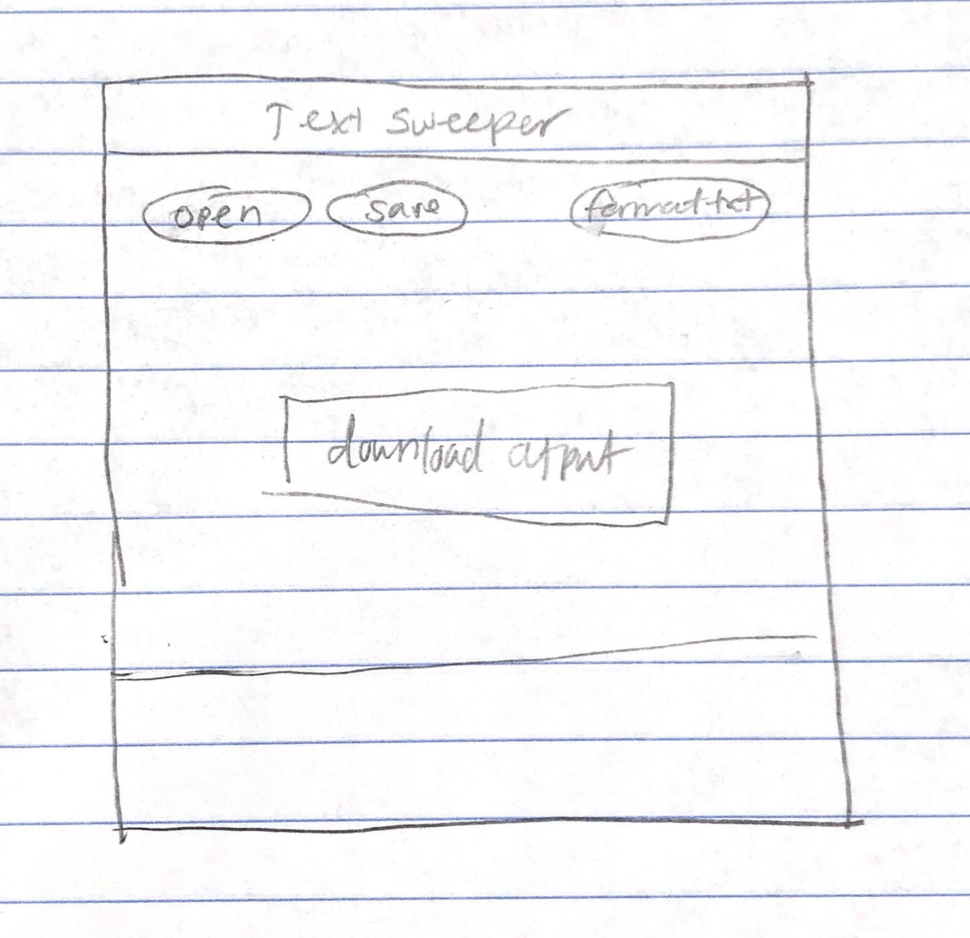 Text Sweeper
open save format txt
download output